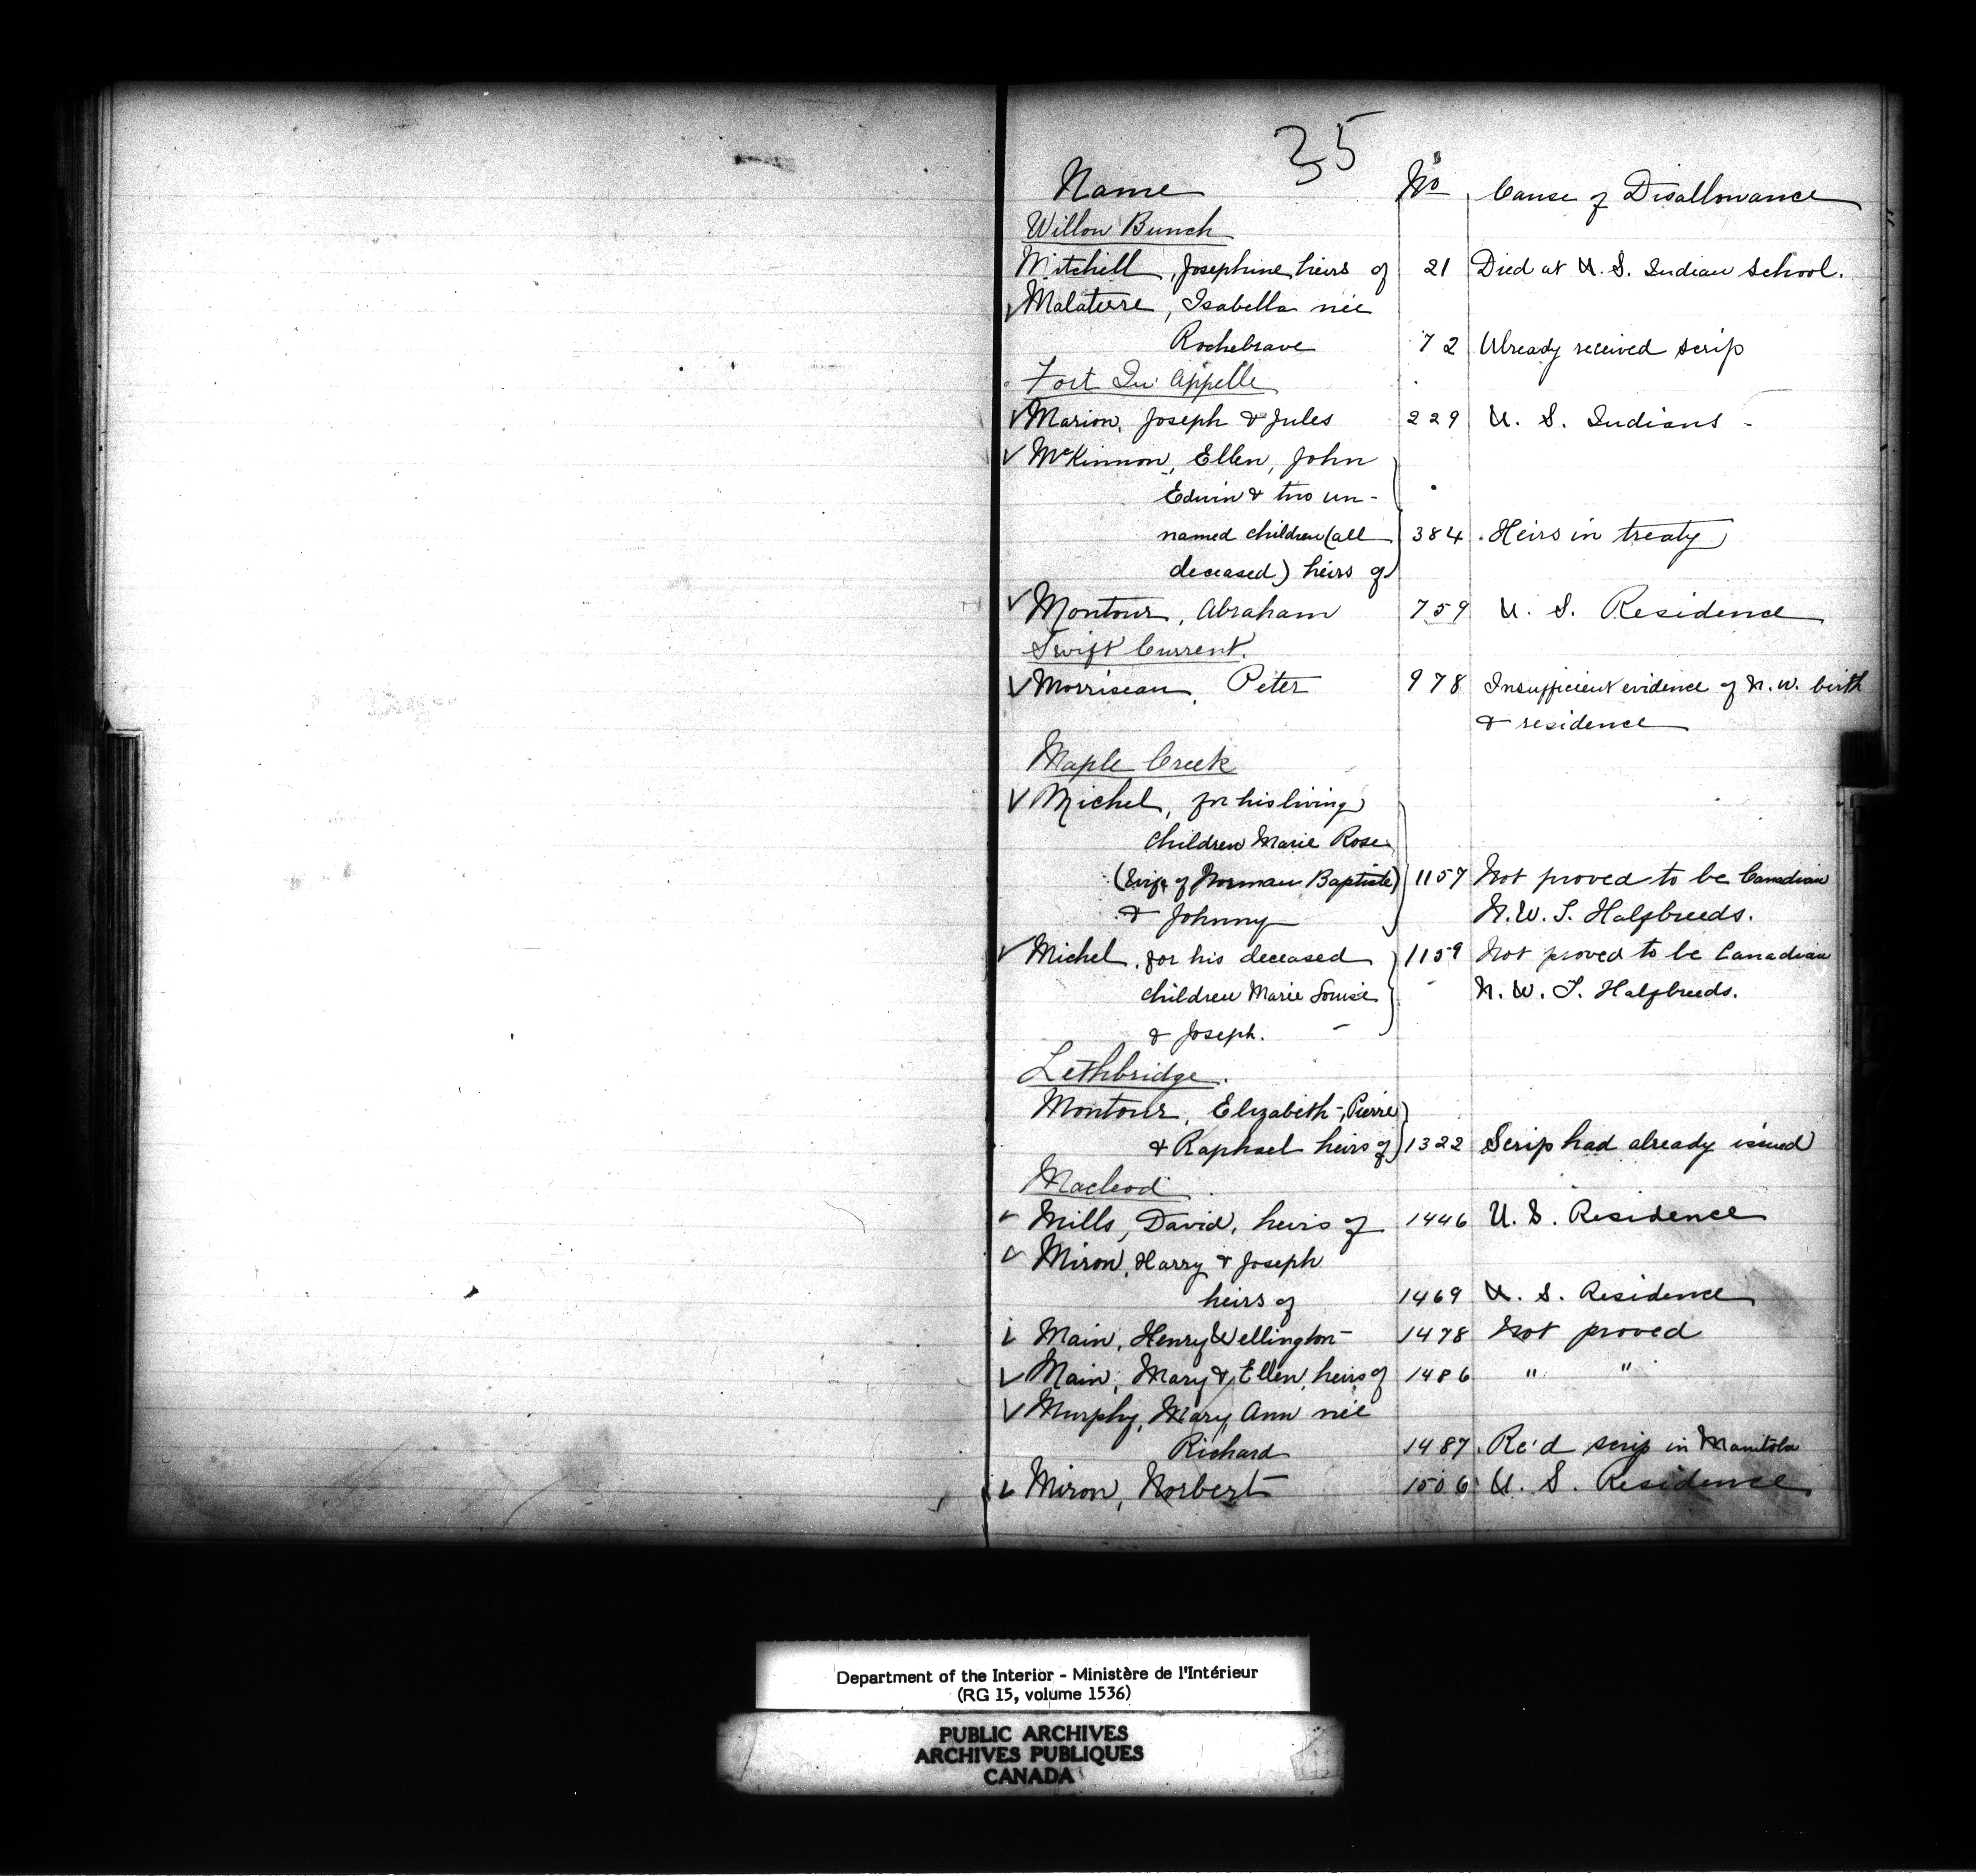 35
Name No Cause of Disallowance
Willow Bunch
Mitchell, Josephine heirs of 21 Died at U. S. Indian School.
✓ Malaterre, Isabella née
Rochebrave 72 Already received scrip
Fort Qu'Appelle
✓ Marion, Joseph & Jules 229 U. S. Indians
✓ McKinnon, Ellen, John
Edwin & two un-
named children (all 384 Heirs in treaty
deceased) heirs of
✓ Montour, Abraham 759 U. S. Residence
Swift Current.
✓ Morriseau, Peter 978 Insufficient evidence of N. W. birth
& residence
Maple Creek
✓ Michel, for his living
children Marie Rose
(wife of Norman Baptiste) 1157 Not proved to be Canadian
& Johnny N. W. T. Halfbreeds.
✓ Michel, for his deceased 1159 Not proved to be Canadian
children Marie Louise N. W. T. Halfbreeds.
& Joseph.
Lethbridge.
Montour, Elizabeth, Pierre
& Raphael heirs of 1322 Scrip had already issued
Macleod
✓ Mills, David, heirs of 1446 U. S. Residence
✓ Miron, Harry & Joseph
heirs of 1469 U. S. Residence
✓ Main, Henry Wellington 1478 Not proved
✓ Main, Mary & Ellen, heirs of 1486 " "
✓ Murphy, Mary Ann née
Richard 1487 Rc'd scrip in Manitoba
✓ Miron, Norbert 1506 U. S. Residence
Department of the Interior - Ministère de l'Intérieur
(RG 15, volume 1536)
PUBLIC ARCHIVES
ARCHIVES PUBLIQUES
CANADA